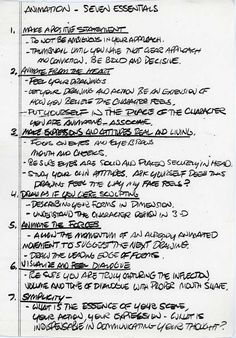 ANIMATION - SEVEN ESSENTIALS
1. MAKE A POSITIVE STATEMENT
- DO NOT BE AMBIGUOUS IN YOUR APPROACH.
- THUMBNAIL UNTIL YOU HAVE THAT CLEAR APPROACH
AND CONVICTION. BE BOLD AND DECISIVE.
2. ANIMATE FROM THE HEART
- FEEL YOUR DRAWINGS
- LET YOUR DRAWING AND ACTION BE AN EXTENSION OF
HOW YOU BELIEVE THE CHARACTER FEELS.
- PUT YOURSELF IN THE PLACE OF THE CHARACTER
YOU ARE ANIMATING - ASSOCIATE.
3. MAKE EXPRESSIONS AND ATTITUDES REAL AND LIVING.
- FOCUS ON EYES AND EYEBROWS
MOUTH AND CHEEKS.
- BE SURE EYES ARE SOLID AND PLACED SECURELY IN HEAD.
- STUDY YOUR OWN ATTITUDES. ASK YOURSELF DOES THIS
DRAWING FEEL THE WAY MY FACE FEELS?
4. DRAW AS IF YOU WERE SCULPTING
- DESCRIBING YOUR FORMS IN DIMENSION.
- UNDERSTAND THE CHARACTER DESIGN IN 3-D
5. ANIMATE THE FORCES
- ALLOW THE MOMENTUM OF AN ALREADY ANIMATED
MOVEMENT TO SUGGEST THE NEXT DRAWING.
- DRAW THE LEADING EDGE OF FORMS.
6. VISUALIZE AND FEEL DIALOGUE
- BE SURE YOU ARE TRULY CAPTURING THE INFLECTION
VOLUME AND TONE OF DIALOGUE WITH PROPER MOUTH SHAPE.
7. SIMPLICITY -
- WHAT IS THE ESSENCE OF YOUR SCENE,
YOUR ACTION, YOUR EXPRESSION - WHAT IS
INDISPENSABLE IN COMMUNICATING YOUR THOUGHT?